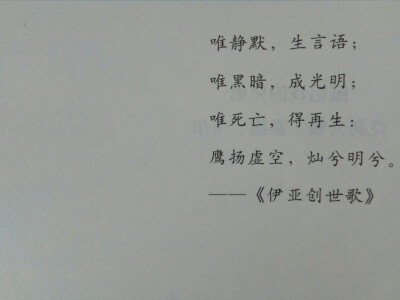 唯静默，生言语；
唯黑暗，成光明；
唯死亡，得再生：
鹰扬虚空，灿兮明兮。
——《伊亚创世歌》